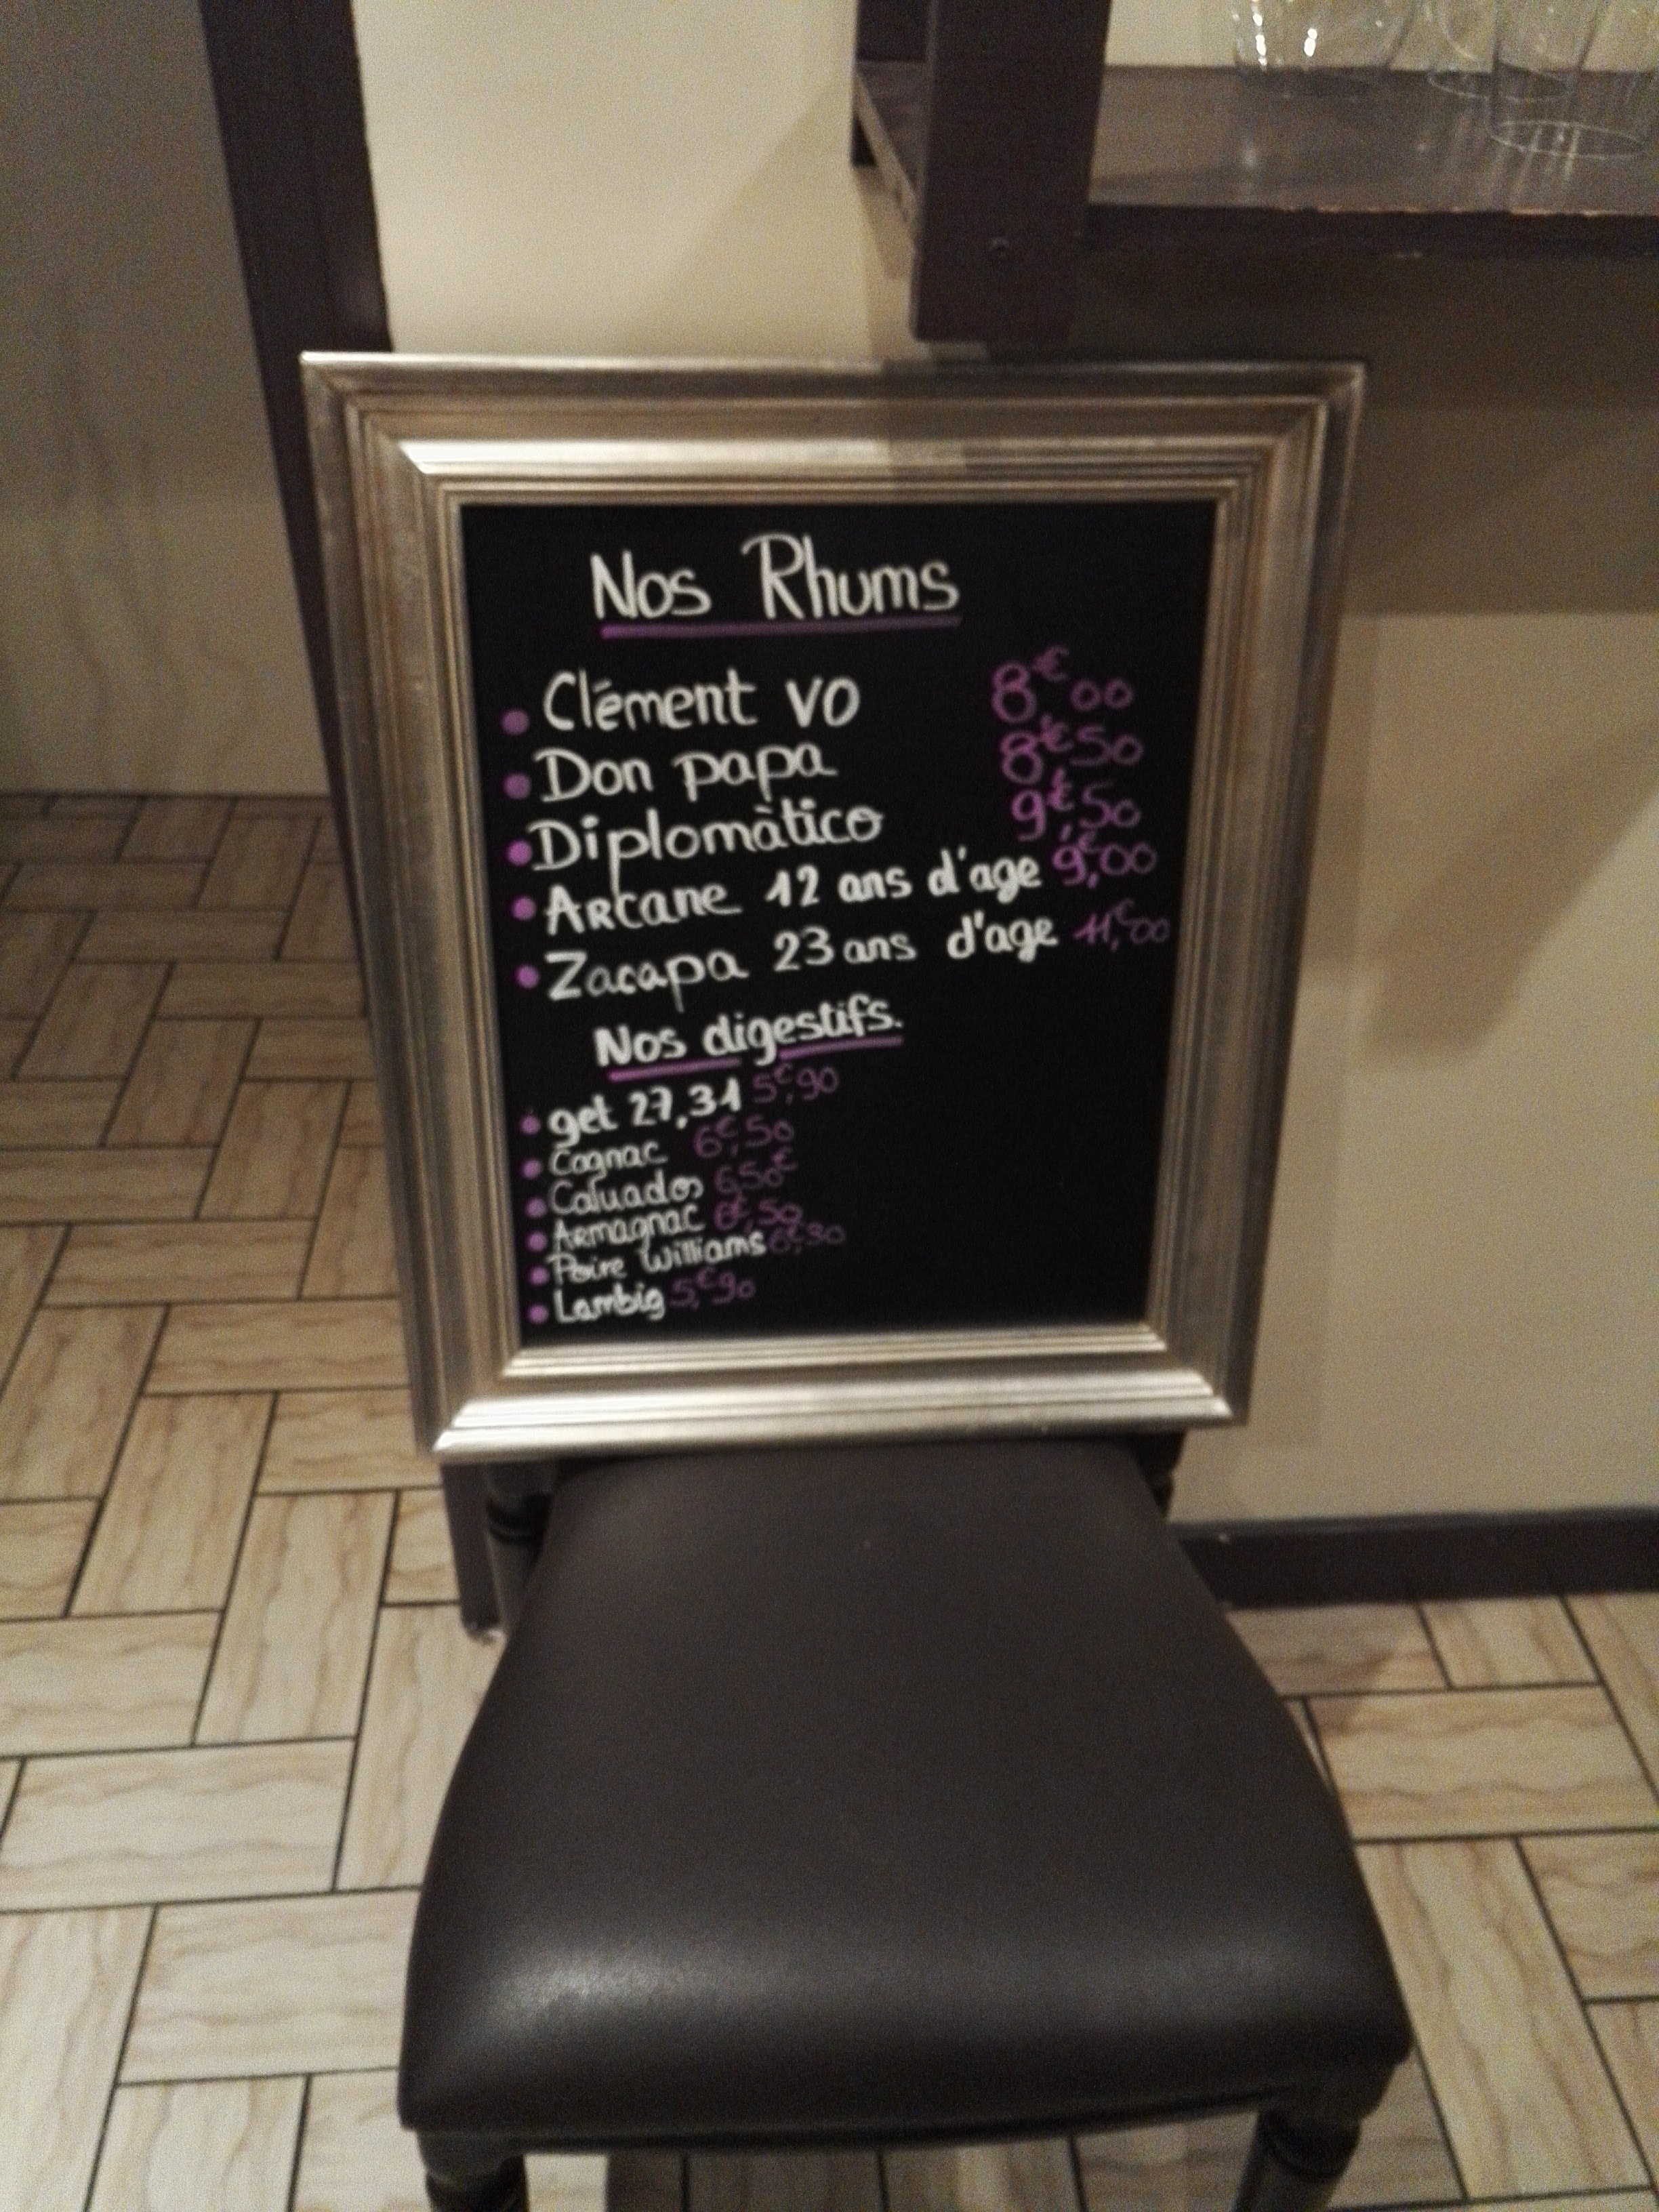 Nos Rhums
Clément VO 8€00
Don papa 8€,50
Diplomàtico 9€,50
Arcane 12 ans d'age 9€,00
Zacapa 23 ans d'age 11,€00
Nos digestifs.
get 27,31 5€,90
Cognac 6€,50
Caluados 6,50€
Armagnac 6€,50
Poire Williams 6€,30
Lambig 5,€90